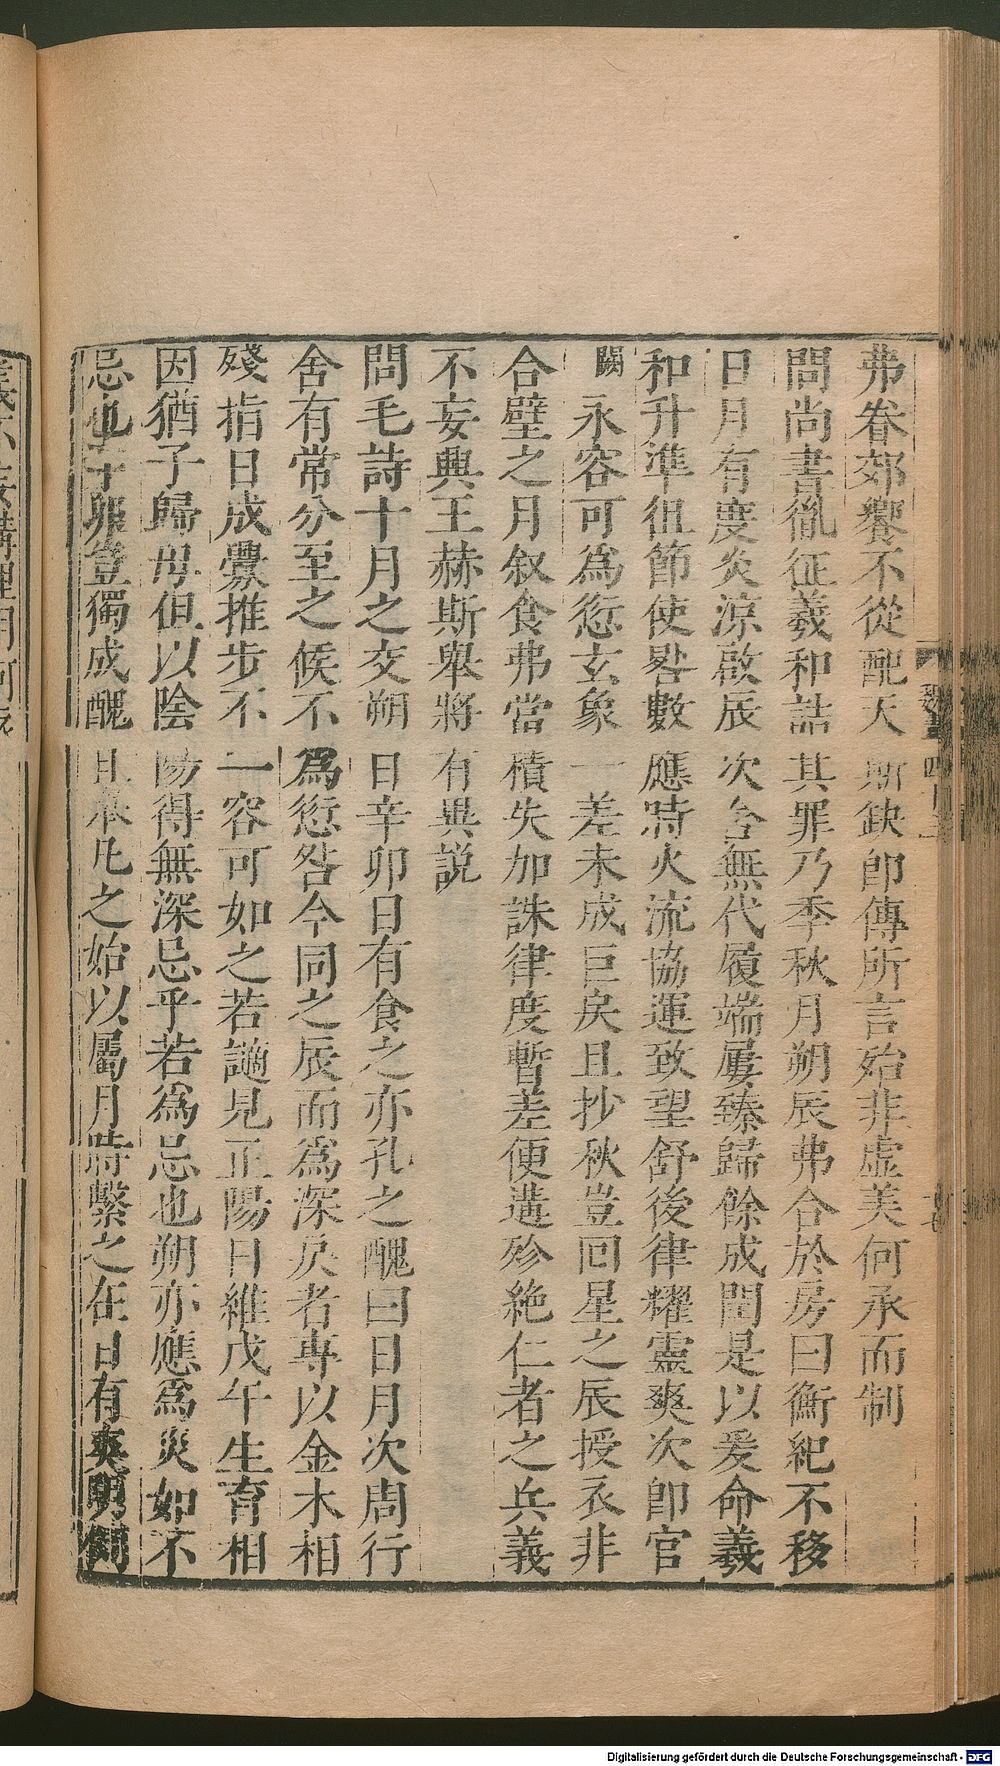 弗眷郊饗不從配天斯缺即傳所言始非虛美何承而制
問尚書胤征羲和詰其罪乃季秋月朔辰弗合於房曰衡紀不移
日月有度炎涼啟辰次舍無代履端屢臻歸餘成閏是以爰命羲
和升準徂節使晷數應時火流協運致望舒後律耀靈爽次即官
闕永容可為愆玄象一差未成巨戾且抄秋豈回星之辰授衣非
合璧之月叙食弗當積失加誅律度暫差便遘殄絶仁者之兵義
不妄興王赫斯舉將有異説
問毛詩十月之交朔日辛卯日有食之亦孔之醜曰日月次周行
舍有常分至之候不為愆咎今同之辰而為深戾者專以金木相
殘指日成釁推步不一容可如之若謫見正陽日維戊午生育相
因猶子歸母但以陰陽得無深忌乎若為忌也朔亦應為災如不
忌也辛卯豈獨成醜且卒凡之始以屬月時繫之在日有爽明
魏書四十五
Digitalisierung gefördert durch die Deutsche Forschungsgemeinschaft - DFG